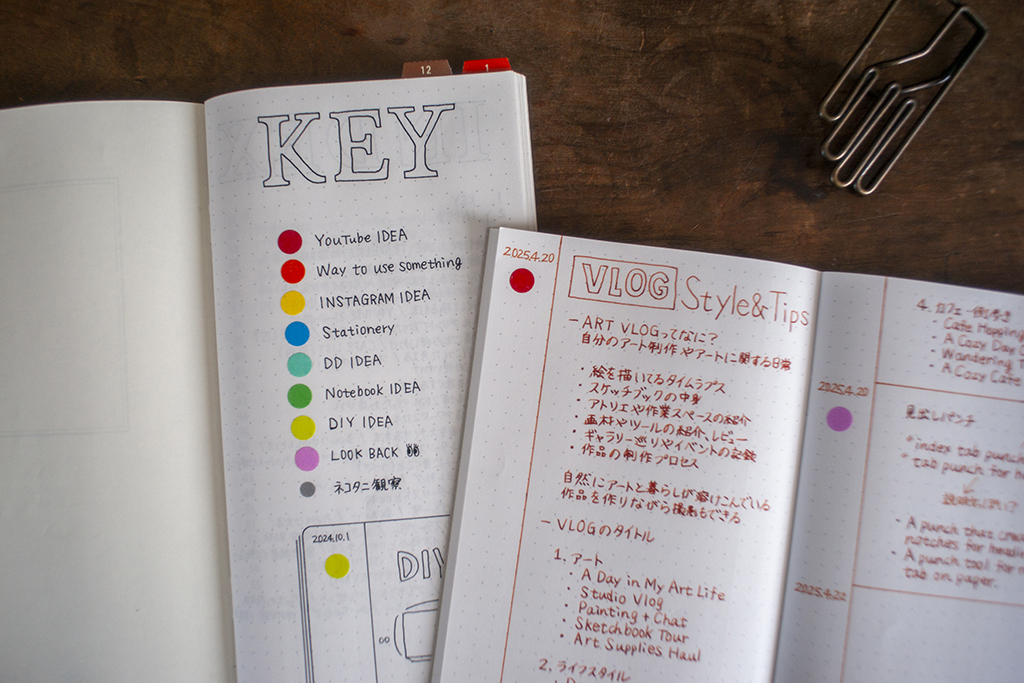 12
1
KEY
YouTube IDEA
Way to use something
INSTAGRAM IDEA
Stationery
DD IDEA
Notebook IDEA
DIY IDEA
LOOK BACK
ネコタニ観察
2024.10.1
DIY
DD
2025.4.20
VLOG Style&Tips
- ART VLOGってなに?
自分のアート制作やアートに関する日常
・絵を描いてるタイムラプス
・スケッチブックの中身
・アトリエや作業スペースの紹介
・画材やツールの紹介、レビュー
・ギャラリー巡りやイベントの記録
・作品の制作プロセス
自然にアートと暮らしが溶けこんでいる
作品を作りながら もできる
- VLOGのタイトル
1. アート
・A Day in My Art Life
・Studio Vlog
・Painting + Chat
・Sketchbook Tour
・Art Supplies Haul
2. ライフスタイル
4. カフェ
・Cafe Hopping
・A Cozy Day
・Wandering
・A Cozy Cafe
2025.4.20
見出しパンチ
*index tab punch
*tab punch for
- A punch that
notches for
- A punch tool for
tab on paper.
2025.4.22